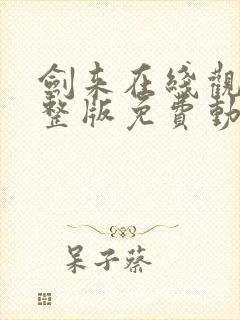 劍來在綫觀
整版免費動
呆子蔡